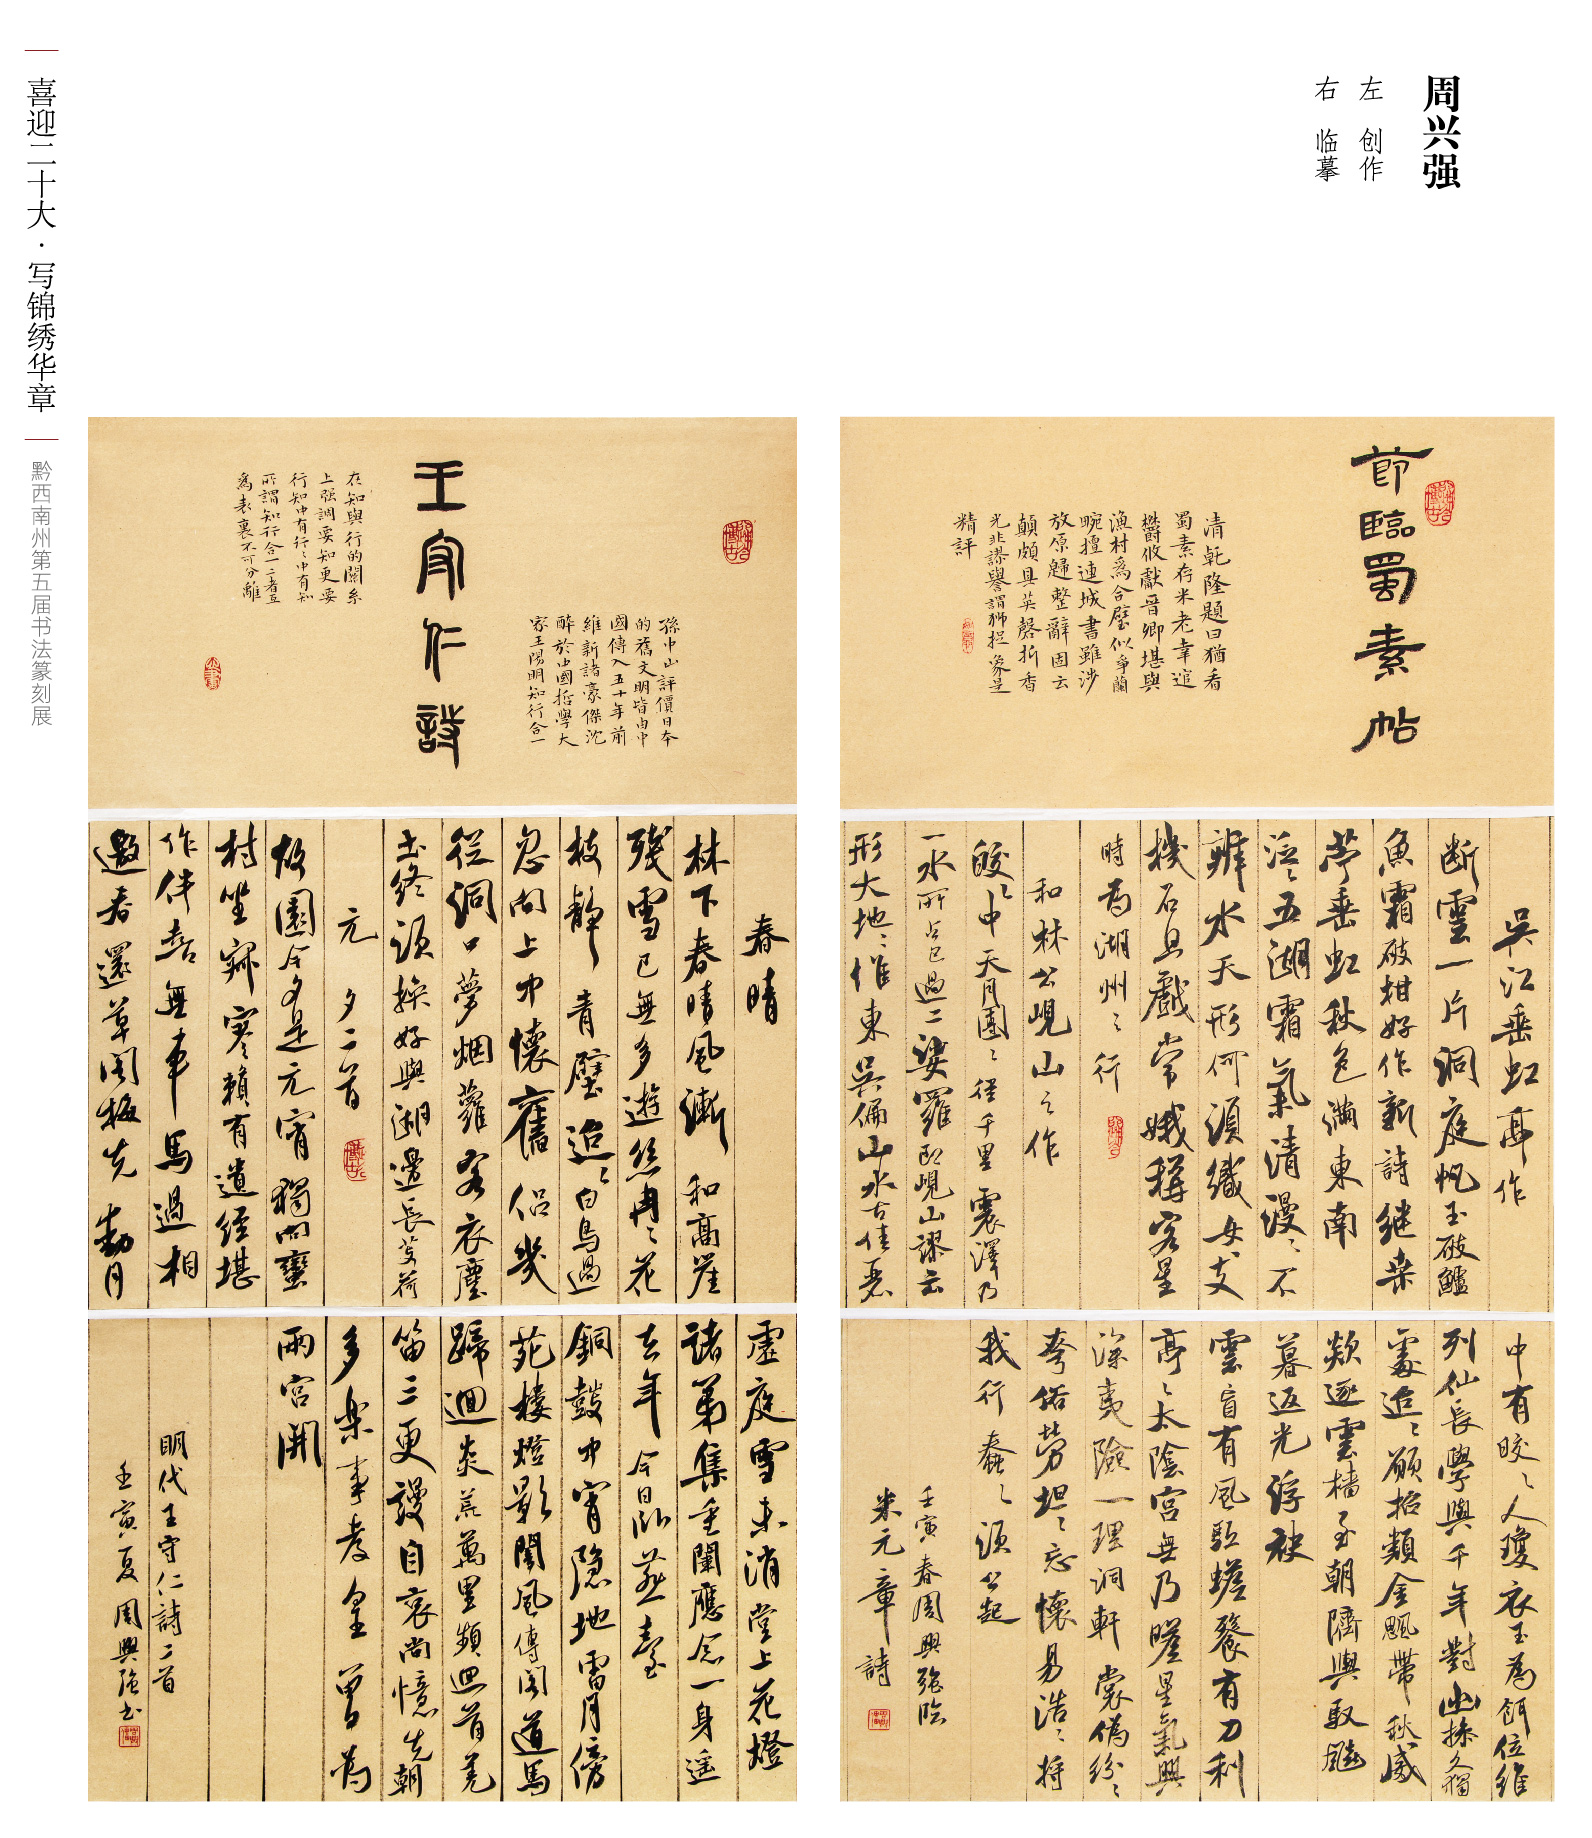 喜迎二十大·写锦绣华章
黔西南州第五届书法篆刻展
周兴强
左 创作
右 临摹
王守仁詩
孫中山評價日本
的舊文明皆由中
國傳入五十年前
維新諸豪傑沈
醉於中國哲學大
家王陽明知行合一
在知與行的關系
上强調要知更要
行知中有行行中有知
所謂知行合一二者互
為表裏不可分離
春晴
林下春晴風漸和高崖
殘雪已無多遊絲冉冉花
枝靜青壁迢迢白鳥過
忽向上中懷舊侶幾
從洞口夢烟蘿客衣塵
土終須換好與湖邊長芰荷
元夕二首
故園今夕是元宵獨向蠻
村坐寂寥賴有遺經堪
作伴喜無車馬過相
邀春還草閣梅先動月
虛庭雪未消堂上花燈
諸弟集重闈應念一身遥
去年今日卧燕臺
銅鼓中宵隐地雷月傍
苑樓燈影闇風傳閣道馬
蹄迴炎荒萬里頻迴首羌
笛三更謾自哀尚憶先朝
多樂事孝皇曾為
兩宮開
明代王守仁詩二首
壬寅夏周興强书
節臨蜀素帖
清乾隆題曰猶看
蜀素存米老幸逭
欝攸獻晉卿堪與
漁村為合璧似爭蘭
畹擅連城書雖涉
放原歸整辭固云
顛頗具英磬折香
光非謬譽謂獅捉象是
精評
吳江垂虹亭作
断雲一片洞庭帆玉破鱸
魚霜破柑好作新詩继桑
苧垂虹秋色滿東南
泛泛五湖霜氣清漫漫不
辨水天形何須織女支
機石且戲常娥稱客星
時為湖州之行
和林公峴山之作
皎皎中天月團團徑千里震澤乃
一水所占已過二娑羅即峴山謬云
形大地惟東吳偏山水古佳麗
中有皎皎人瓊衣玉為餌位維
列仙長學與千年對幽操久獨
處迢迢願招類金颸帶秋威
欻逐雲檣至朝隮輿馭飇
暮返光浮袂
雲盲有風駈蟾餮有刀利
亭亭太陰宮無乃瞻星氣興
深夷險一理洞軒裳偽紛紛
夸俗勞坦坦忘懷易浩浩將
我行蠢蠢須公起
米元章詩
壬寅春周興强臨